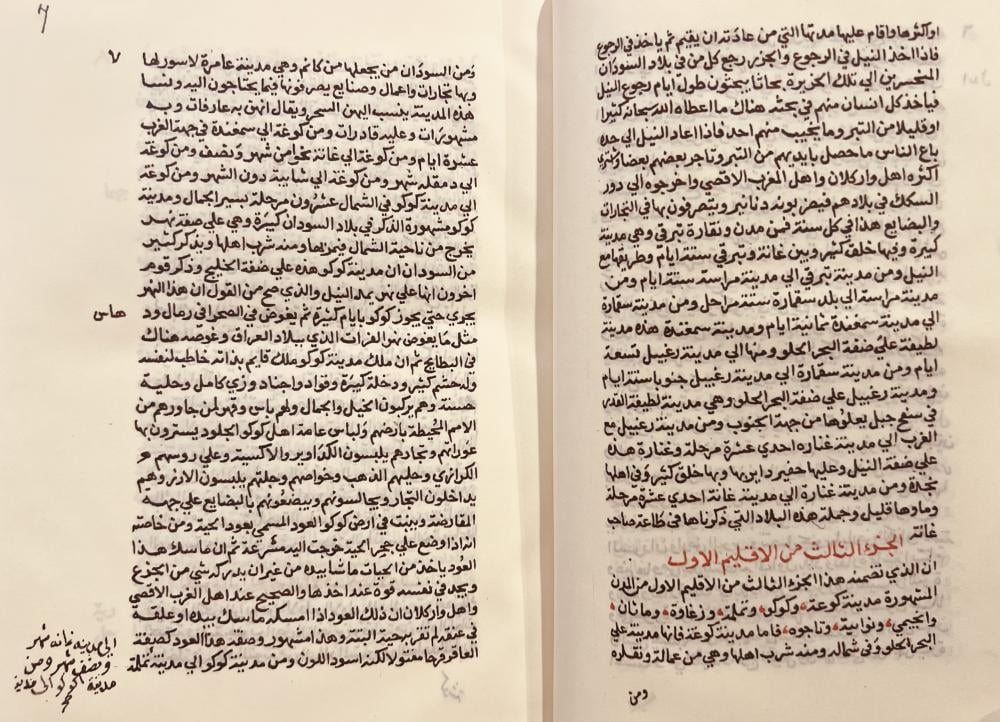 اوكثرها واقام عليها مدتها التي من عادته ان يقيم ثم ياخذ في الرجوع
فاذا اخذ النيل في الرجوع والجزر رجع كل من في بلاد السودان
المنحسرين الي تلك الجزيرة بحاثا يبحثون طول ايام رجوع النيل
فياخذ كل انسان منهم في بحثه هناك ما اعطاه الله سبحانه كثيرا
اوقليلا من التبر وما يخيب منهم احد فاذا اعاد النيل الي حده
باع الناس ما حصل بايديهم من التبر وتاجر بعضهم بعضا واشتري
اكثره اهل واركلان واهل المغرب الاقصي واخرجوه الي دور
السكك في بلادهم فيضربونه دنانير ويتصرفون بها في التجارات
والبضايع هذا في كل سنة فمن مدن ونقارة تيرقي وهي مدينة
كبيرة وفيها خلق كثير وبين غانة وتيرقي ستة ايام وطريقها مع
النيل ومن مدينة تيرقي الي مدينة مراسة ستة ايام ومن
مدينة مراسة الي بلد سقمارة ستة مراحل ومن مدينة سقمارة
الي مدينة سمغندة ثمانية ايام ومدينة سمغندة هذه مدينة
لطيفة علي ضفة البحر الحلو ومنها الي مدينة رغبيل تسعة
ايام ومن مدينة سقمارة الي مدينة رغبيل جنوبا ستة ايام
ومدينة رغبيل علي ضفة البحر الحلو وهي مدينة لطيفة القدر
في سفح جبل يعلوها من جهة الجنوب ومن مدينة رغبيل مع
الغرب الي مدينة غناره احدي عشرة مرحلة وغنارة هذه
علي ضفة النيل وعليها حفير داير بها وبها خلق كثير وفي اهلها
نجدة ومن مدينة غنارة الي مدينة غانة احدي عشرة مرحلة
وماوها قليل وجملة هذه البلاد التي ذكرناها في طاعة صاحب
غانة
الجزء الثالث من الاقليم الاول
ان الذي تضمنه هذا الجزء الثالث من الاقليم الاول من المدن
المشهورة مدينة كوغة، وكوكو، وتملة، وزغاوة، ومانان،
وانجيمي، ونوابية، وتاجوه، فاما مدينة كوغة فانها مدينة علي
البحر الحلو وفي شماله ومنه شرب اهلها وهي من عمالة ونقاره
ومن
7
٧
ومن السودان من يجعلها من كانم وهي مدينة عامرة لاسور لها
وبها تجارات واعمال وصنايع يصرفونها فيما يحتاجون اليه ولنسا
هذه المدينة ينسب اليهن السحر ويقال انهن به عارفات وبه
مشهورات وعليه قادرات ومن كوغة الي سمغندة في جهة الغرب
عشرة ايام ومن كوغة الي غانة نحوا من شهر ونصف ومن كوغة
الي دمقله شهر ومن كوغة الي شابية دون الشهر ومن كوغة
الي مدينة كوكو في الشمال عشرون مرحلة بسير الجمال ومدينة
كوكو مشهورة الذكر في بلاد السودان كبيرة وهي علي ضفة نهر
يخرج من ناحية الشمال فيمر بها ومنه شرب اهلها ويذكر كثير
من السودان ان مدينة كوكو هذه علي ضفة الخليج وذكر قوم
اخرون انها علي نهر يمد النيل والذي صح من القول ان هذا النهر
يجري حتي يجوز كوكو بايام كثيرة ثم يغوص في الصحرا في رمال ود
هاس
مثل ما يغوض نهر الفرات الذي ببلاد العراق وغوصه هناك
في البطايح ثم ان ملك مدينة كوكو ملك قايم بذاته خاطب لنفسه
وله حشم كثير ودخلة كبيرة وقواد واجناد وزي كامل وحلية
حسنة وهم يركبون الخيل والجمال ولهم باس وقهر لمن جاورهم من
الامم المحيطة بارضهم ولباس عامة اهل كوكو الجلود يسترون بها
عوراتهم وتجارهم يلبسون القداوير والاكسية وعلي روسهم
الكرازي وحليهم الذهب وخواصهم وجلتهم يلبسون الازر وهم
يداخلون التجار ويجالسونهم ويبضعونهم بالبضايع علي جهة
المقارضة وينبت في ارض كوكو العود المسمي بعود الحية ومن خاصته
انه اذا وضع علي جحر الحية خرجت اليه مسرعة ثم ان ماسك هذا
العود ياخذ من الحيات ما شابيده من غير ان يدركه شي من الجزع
ويجد في نفسه قوة عند اخذها والصحيح عند اهل الغرب الاقصي
واهل واركلان ان ذلك العود اذا امسكه ماسك بيده او علقه
في عنقه لم تقربه حية البتة وهذا مشهور وصفة هذا العود كصفة
العاقرقرحا مفتولا لكنه اسود اللون ومن مدينة كوكو الي مدينة تملة
الي مدينة غانه شهر
ونصف شهر ومن
مدينة كوكو الي مدينة